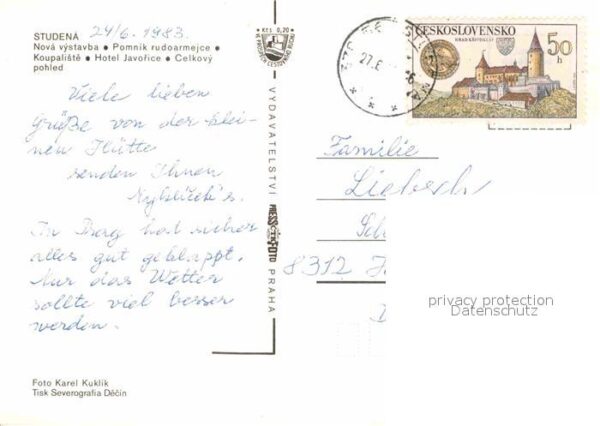 STUDENÁ
24/6. 1983.
Nová výstavba • Pomník rudoarmejce •
Koupaliště • Hotel Javořice • Celkový
pohled
Viele lieben
Grüße von der klei-
nen Hütte
senden Ihnen
In Prag hat sicher
alles gut geklappt.
Nur das Wetter
sollte viel besser
werden.
Foto Karel Kuklík
Tisk Severografia Děčín
Kčs 0,20
VYDAVATELSTVÍ
PRESSFOTO
PRAHA
ČESKOSLOVENSKO
HRAD KŘIVOKLÁT
50
h
27.6
Familie
Liebsch
8312
privacy protection
Datenschutz